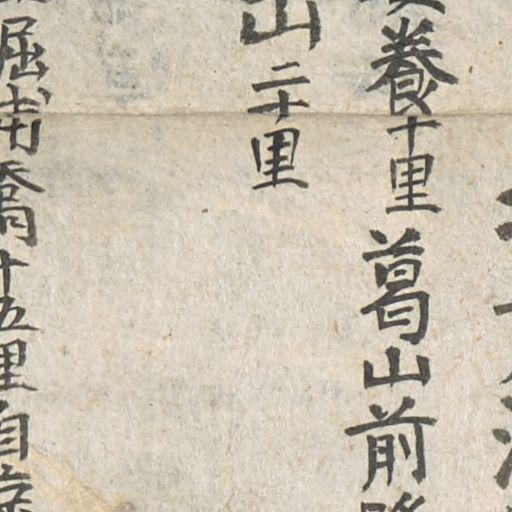 養十里葛山前
山二十里
堀浦喬十五里自